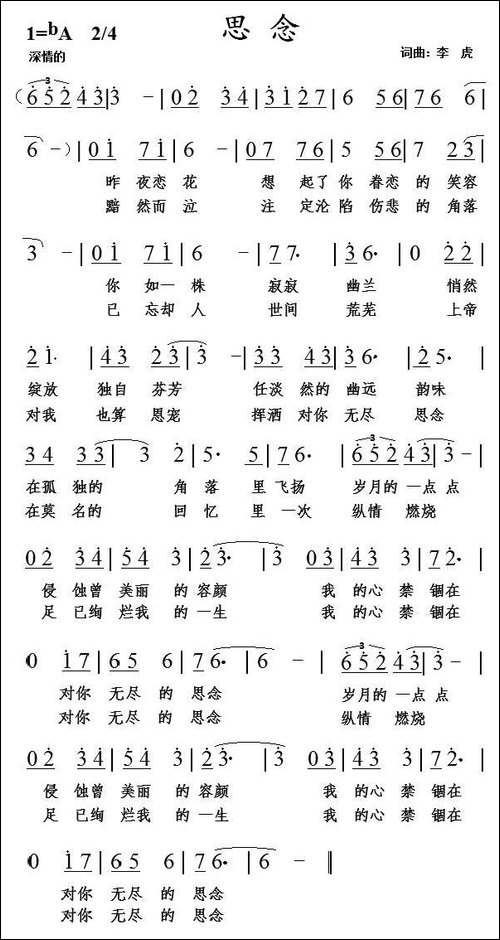 1=ᵇA 2/4
思念
深情的
词曲：李 虎
（6 5 2 4 3|3 －|0 2 3 4|3 1 2 7|6 5 6|7 6 6
6 －）|0 1 7 1|6 －|0 7 7 6|5 5 6|7 2 3
昨 夜恋 花 想 起了 你 眷恋 的 笑容
黯 然而 泣 注 定沦 陷 伤悲 的 角落
3 －|0 1 7 1|6 －|7 7·|3 6·|0 2 2|
你 如一 株 寂寂 幽兰 悄然
已 忘却 人 世间 荒芜 上帝
2 1·|4 3 2 3|3 －|3 3 4 3|3 6·|2 5·|
绽放 独自 芬芳 任淡 然的 幽远 韵味
对我 也算 恩宠 挥洒 对你 无尽 思念
3 4 3 3|3 2|5· 5|7 6·|6 5 2 4 3|3 －|
在孤 独的 角 落 里 飞扬 岁月的 一点 点
在莫 名的 回 忆 里 一次 纵情 燃烧
0 2 3 4|5 4 3|2 3·|3 0 3|4 3 3|7 2·|
侵 蚀曾 美丽 的 容颜 我 的心 禁 锢在
足 已绚 烂我 的 一生 我 的心 禁 锢在
0 1 7|6 5 6|7 6·|6 －|6 5 2 4 3|3 －|
对你 无尽 的 思念 岁月的 一点 点
对你 无尽 的 思念 纵情 燃烧
0 2 3 4|5 4 3|2 3·|3 0 3|4 3 3|7 2·|
侵 蚀曾 美丽 的 容颜 我 的心 禁 锢在
足 已绚 烂我 的 一生 我 的心 禁 锢在
0 1 7|6 5 6|7 6·|6 －‖
对你 无尽 的 思念
对你 无尽 的 思念